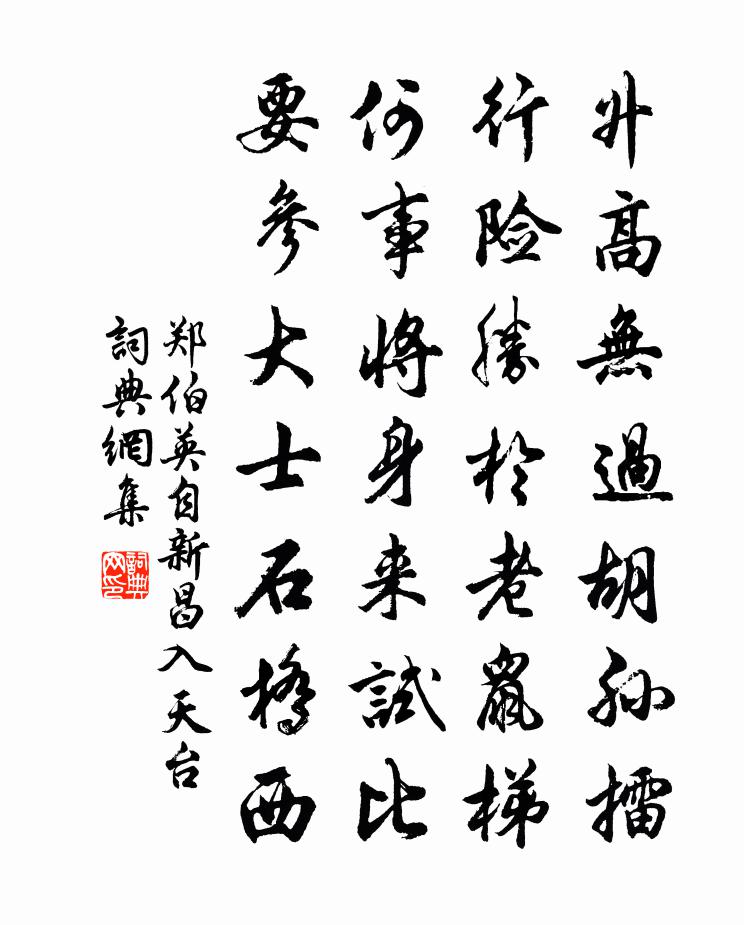 升高無過胡孙擂
行险勝於老鼠梯
何事將身来試比
要參大士石橋西
郑伯英自新昌入天台
詞典網集
詞典网印